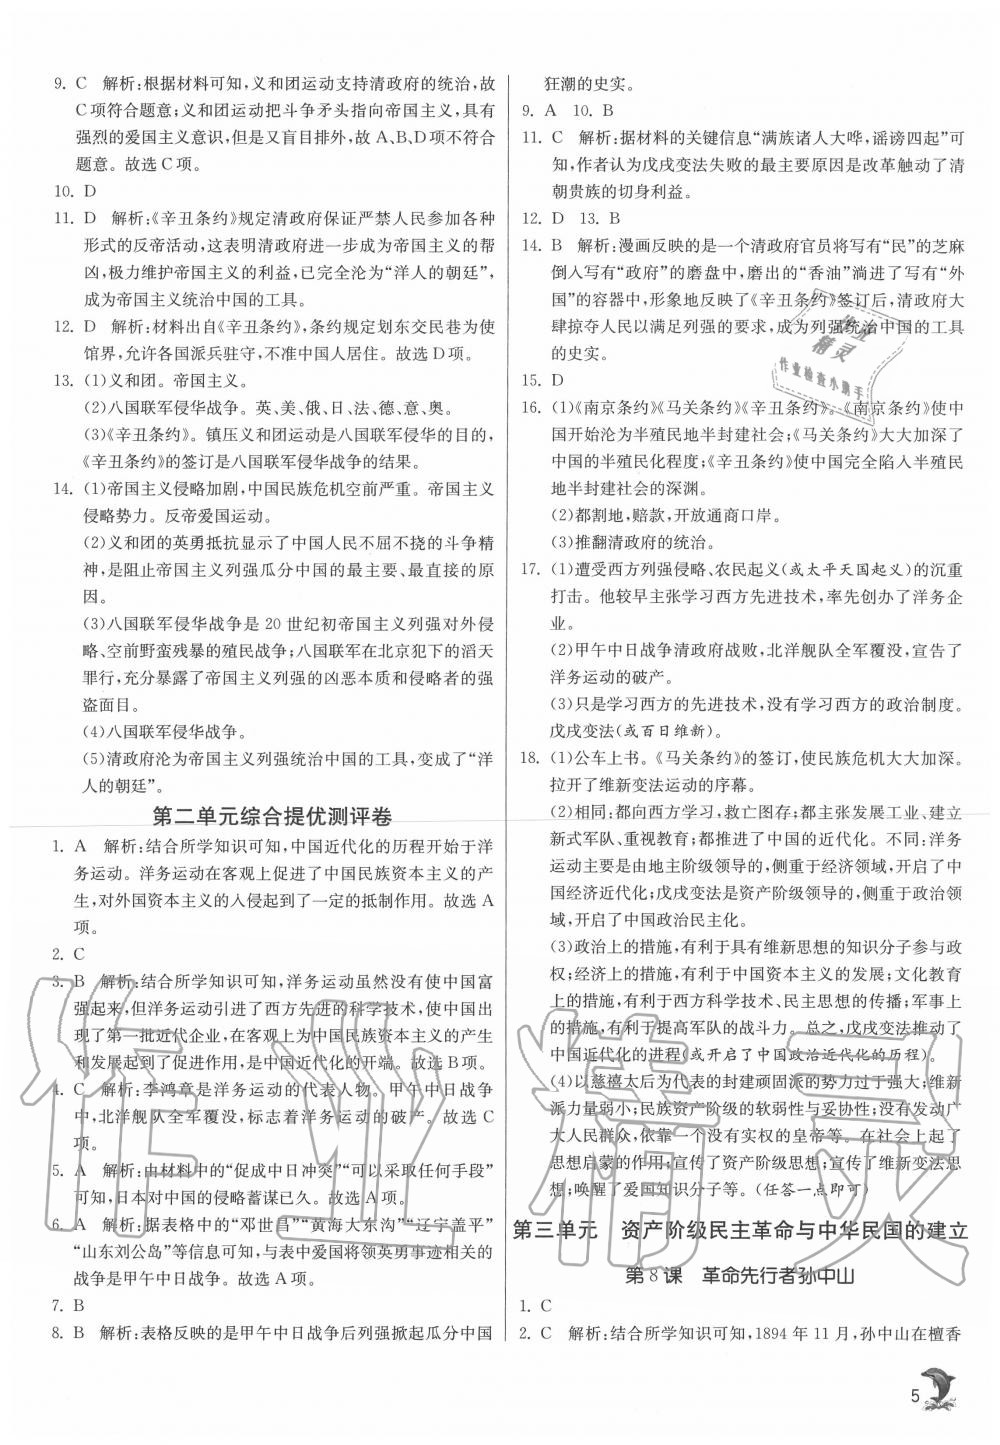 9. C 解析:根据材料可知,义和团运动支持清政府的统治,故
C项符合题意;义和团运动把斗争矛头指向帝国主义,具有
强烈的爱国主义意识,但是又盲目排外,故A、B、D项不符合
题意。故选C项。
10. D
11. D 解析:《辛丑条约》规定清政府保证严禁人民参加各种
形式的反帝活动,这表明清政府进一步成为帝国主义的帮
凶,极力维护帝国主义的利益,已完全沦为“洋人的朝廷”,
成为帝国主义统治中国的工具。
12. D 解析:材料出自《辛丑条约》,条约规定划东交民巷为使
馆界,允许各国派兵驻守,不准中国人居住。故选D项。
13. (1)义和团。帝国主义。
(2)八国联军侵华战争。英、美、俄、日、法、德、意、奥。
(3)《辛丑条约》。镇压义和团运动是八国联军侵华的目的,
《辛丑条约》的签订是八国联军侵华战争的结果。
14. (1)帝国主义侵略加剧,中国民族危机空前严重。帝国主义
侵略势力。反帝爱国运动。
(2)义和团的英勇抵抗显示了中国人民不屈不挠的斗争精
神,是阻止帝国主义列强瓜分中国的最主要、最直接的原
因。
(3)八国联军侵华战争是20世纪初帝国主义列强对外侵
略、空前野蛮残暴的殖民战争;八国联军在北京犯下的滔天
罪行,充分暴露了帝国主义列强的凶恶本质和侵略者的强
盗面目。
(4)八国联军侵华战争。
(5)清政府沦为帝国主义列强统治中国的工具,变成了“洋
人的朝廷”。
第二单元综合提优测评卷
1. A 解析:结合所学知识可知,中国近代化的历程开始于洋
务运动。洋务运动在客观上促进了中国民族资本主义的产
生,对外国资本主义的入侵起到了一定的抵制作用。故选A
项。
2. C
3. B 解析:结合所学知识可知,洋务运动虽然没有使中国富
强起来,但洋务运动引进了西方先进的科学技术,使中国出
现了第一批近代企业,在客观上为中国民族资本主义的产生
和发展起到了促进作用,是中国近代化的开端。故选B项。
4. C 解析:李鸿章是洋务运动的代表人物。甲午中日战争
中,北洋舰队全军覆没,标志着洋务运动的破产。故选C
项。
5. A 解析:由材料中的“促成中日冲突”“可以采取任何手段”
可知,日本对中国的侵略蓄谋已久。故选A项。
6. A 解析:据表格中的“邓世昌”“黄海大东沟”“辽宁盖平”
“山东刘公岛”等信息可知,与表中爱国将领英勇事迹相关的
战争是甲午中日战争。故选A项。
7. B
8. B 解析:表格反映的是甲午中日战争后列强掀起瓜分中国
狂潮的史实。
9. A 10. B
11. C 解析:据材料的关键信息“满族诸人大哗,谣谤四起”可
知,作者认为戊戌变法失败的最主要原因是改革触动了清
朝贵族的切身利益。
12. D 13. B
14. B 解析:漫画反映的是一个清政府官员将写有“民”的芝麻
倒入写有“政府”的磨盘中,磨出的“香油”淌进了写有“外
国”的容器中,形象地反映了《辛丑条约》签订后,清政府大
肆掠夺人民以满足列强的要求,成为列强统治中国的工具
的史实。
15. D
16. (1)《南京条约》《马关条约》《辛丑条约》。《南京条约》使中
国开始沦为半殖民地半封建社会;《马关条约》大大加深了
中国的半殖民化程度;《辛丑条约》使中国完全陷入半殖民
地半封建社会的深渊。
(2)都割地,赔款,开放通商口岸。
(3)推翻清政府的统治。
17. (1)遭受西方列强侵略、农民起义(或太平天国起义)的沉重
打击。他较早主张学习西方先进技术,率先创办了洋务企
业。
(2)甲午中日战争清政府战败,北洋舰队全军覆没,宣告了
洋务运动的破产。
(3)只是学习西方的先进技术,没有学习西方的政治制度。
戊戌变法(或百日维新)。
18. (1)公车上书。《马关条约》的签订,使民族危机大大加深。
拉开了维新变法运动的序幕。
(2)相同:都向西方学习,救亡图存;都主张发展工业、建立
新式军队、重视教育;都推进了中国的近代化。不同:洋务
运动主要是由地主阶级领导的,侧重于经济领域,开启了中
国经济近代化;戊戌变法是资产阶级领导的,侧重于政治领
域,开启了中国政治民主化。
(3)政治上的措施,有利于具有维新思想的知识分子参与政
权;经济上的措施,有利于中国资本主义的发展;文化教育
上的措施,有利于西方科学技术、民主思想的传播;军事上
的措施,有利于提高军队的战斗力。总之,戊戌变法推动了
中国近代化的进程(或开启了中国政治近代化的历程)。
(4)以慈禧太后为代表的封建顽固派的势力过于强大;维新
派力量弱小;民族资产阶级的软弱性与妥协性;没有发动广
大人民群众,依靠一个没有实权的皇帝等。在社会上起了
思想启蒙的作用;宣传了资产阶级思想;宣传了维新变法思
想;唤醒了爱国知识分子等。(任答一点即可)
第三单元 资产阶级民主革命与中华民国的建立
第8课 革命先行者孙中山
1. C
2. C 解析:结合所学知识可知,1894年11月,孙中山在檀香
5
作业精灵
作业精灵
作业检查小助手